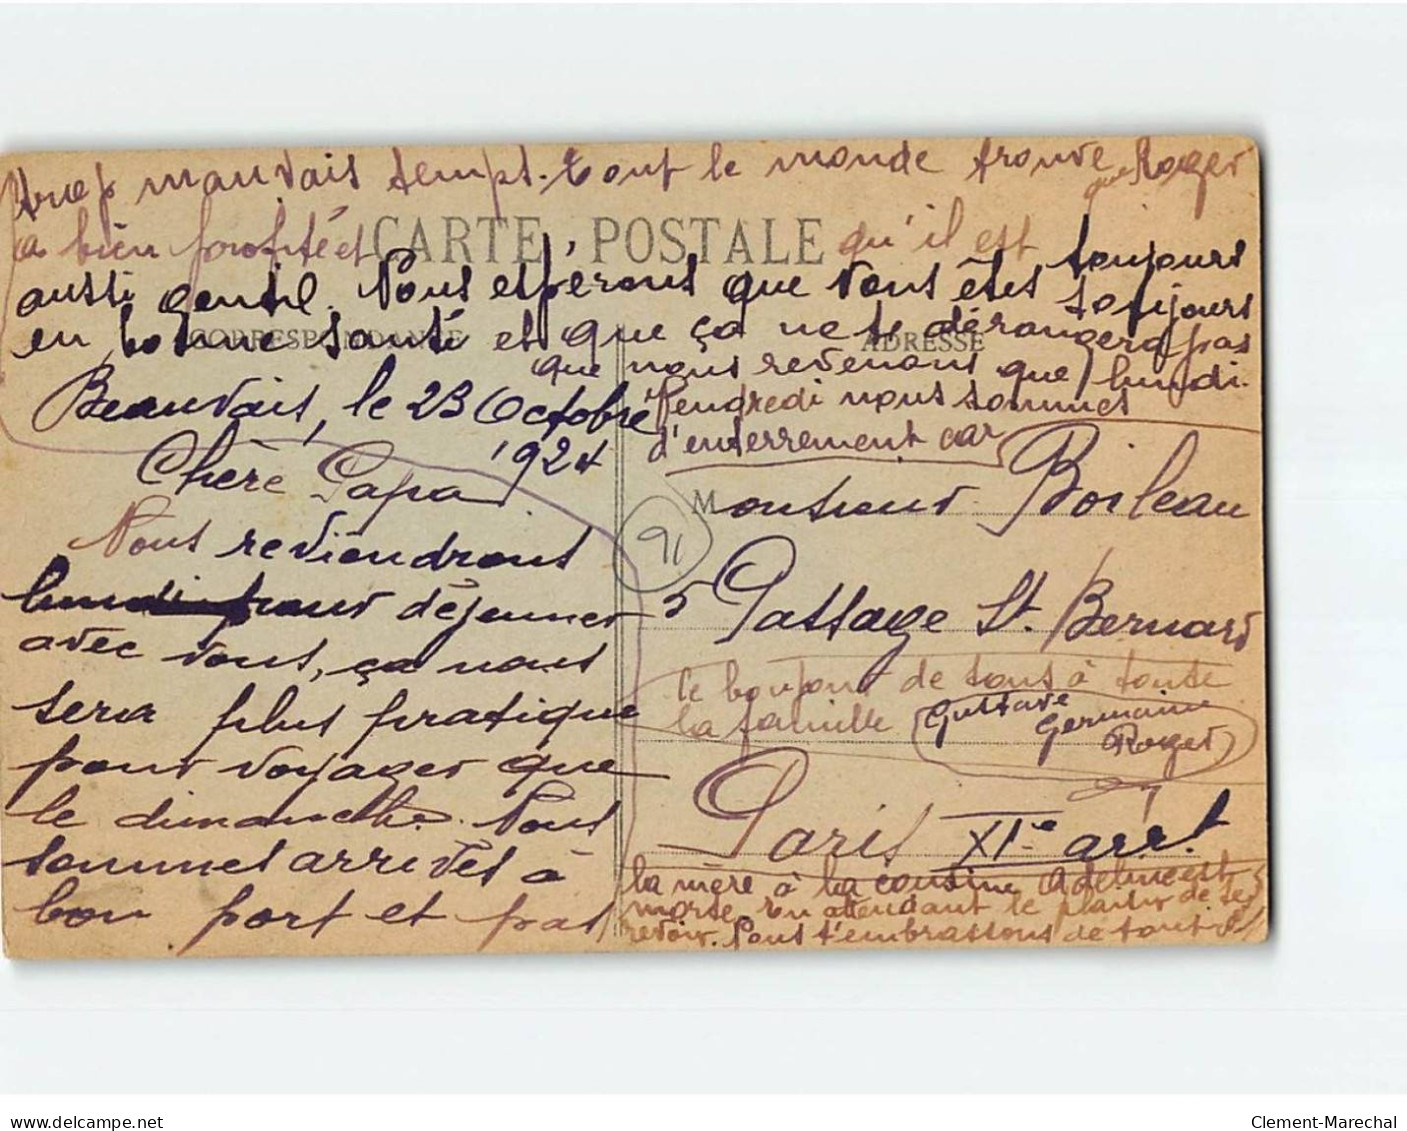 trop mauvais temps. tout le monde trouve que Roger
a bien profité et CARTE POSTALE qu'il est toujours
aussi gentil. Nous espérons que vous êtes toujours
en bonne santé et que ça ne te dérangera pas
CORRESPONDANCE
ADRESSE
que nous revenons que lundi.
Vendredi nous sommes
d'enterrement car
Beauvais, le 23 Octobre
1924
Chère Papa
Nous reviendrons
lundi pour déjeuner
avec vous, ça nous
sera plus pratique
pour voyager que
le dimanche. Nous
sommes arrivés à
bon port et pas
Monsieur Boileau
91
5 Passage St. Bernard
le bonjour de tous à toute
la famille Gustave
Germaine
Roger
Paris XIe arrt.
la mère à la cousine Adeline est
morte En attendant le plaisir de se
revoir. Nous t'embrassons de tout
delcampe.net
Clement-Marechal